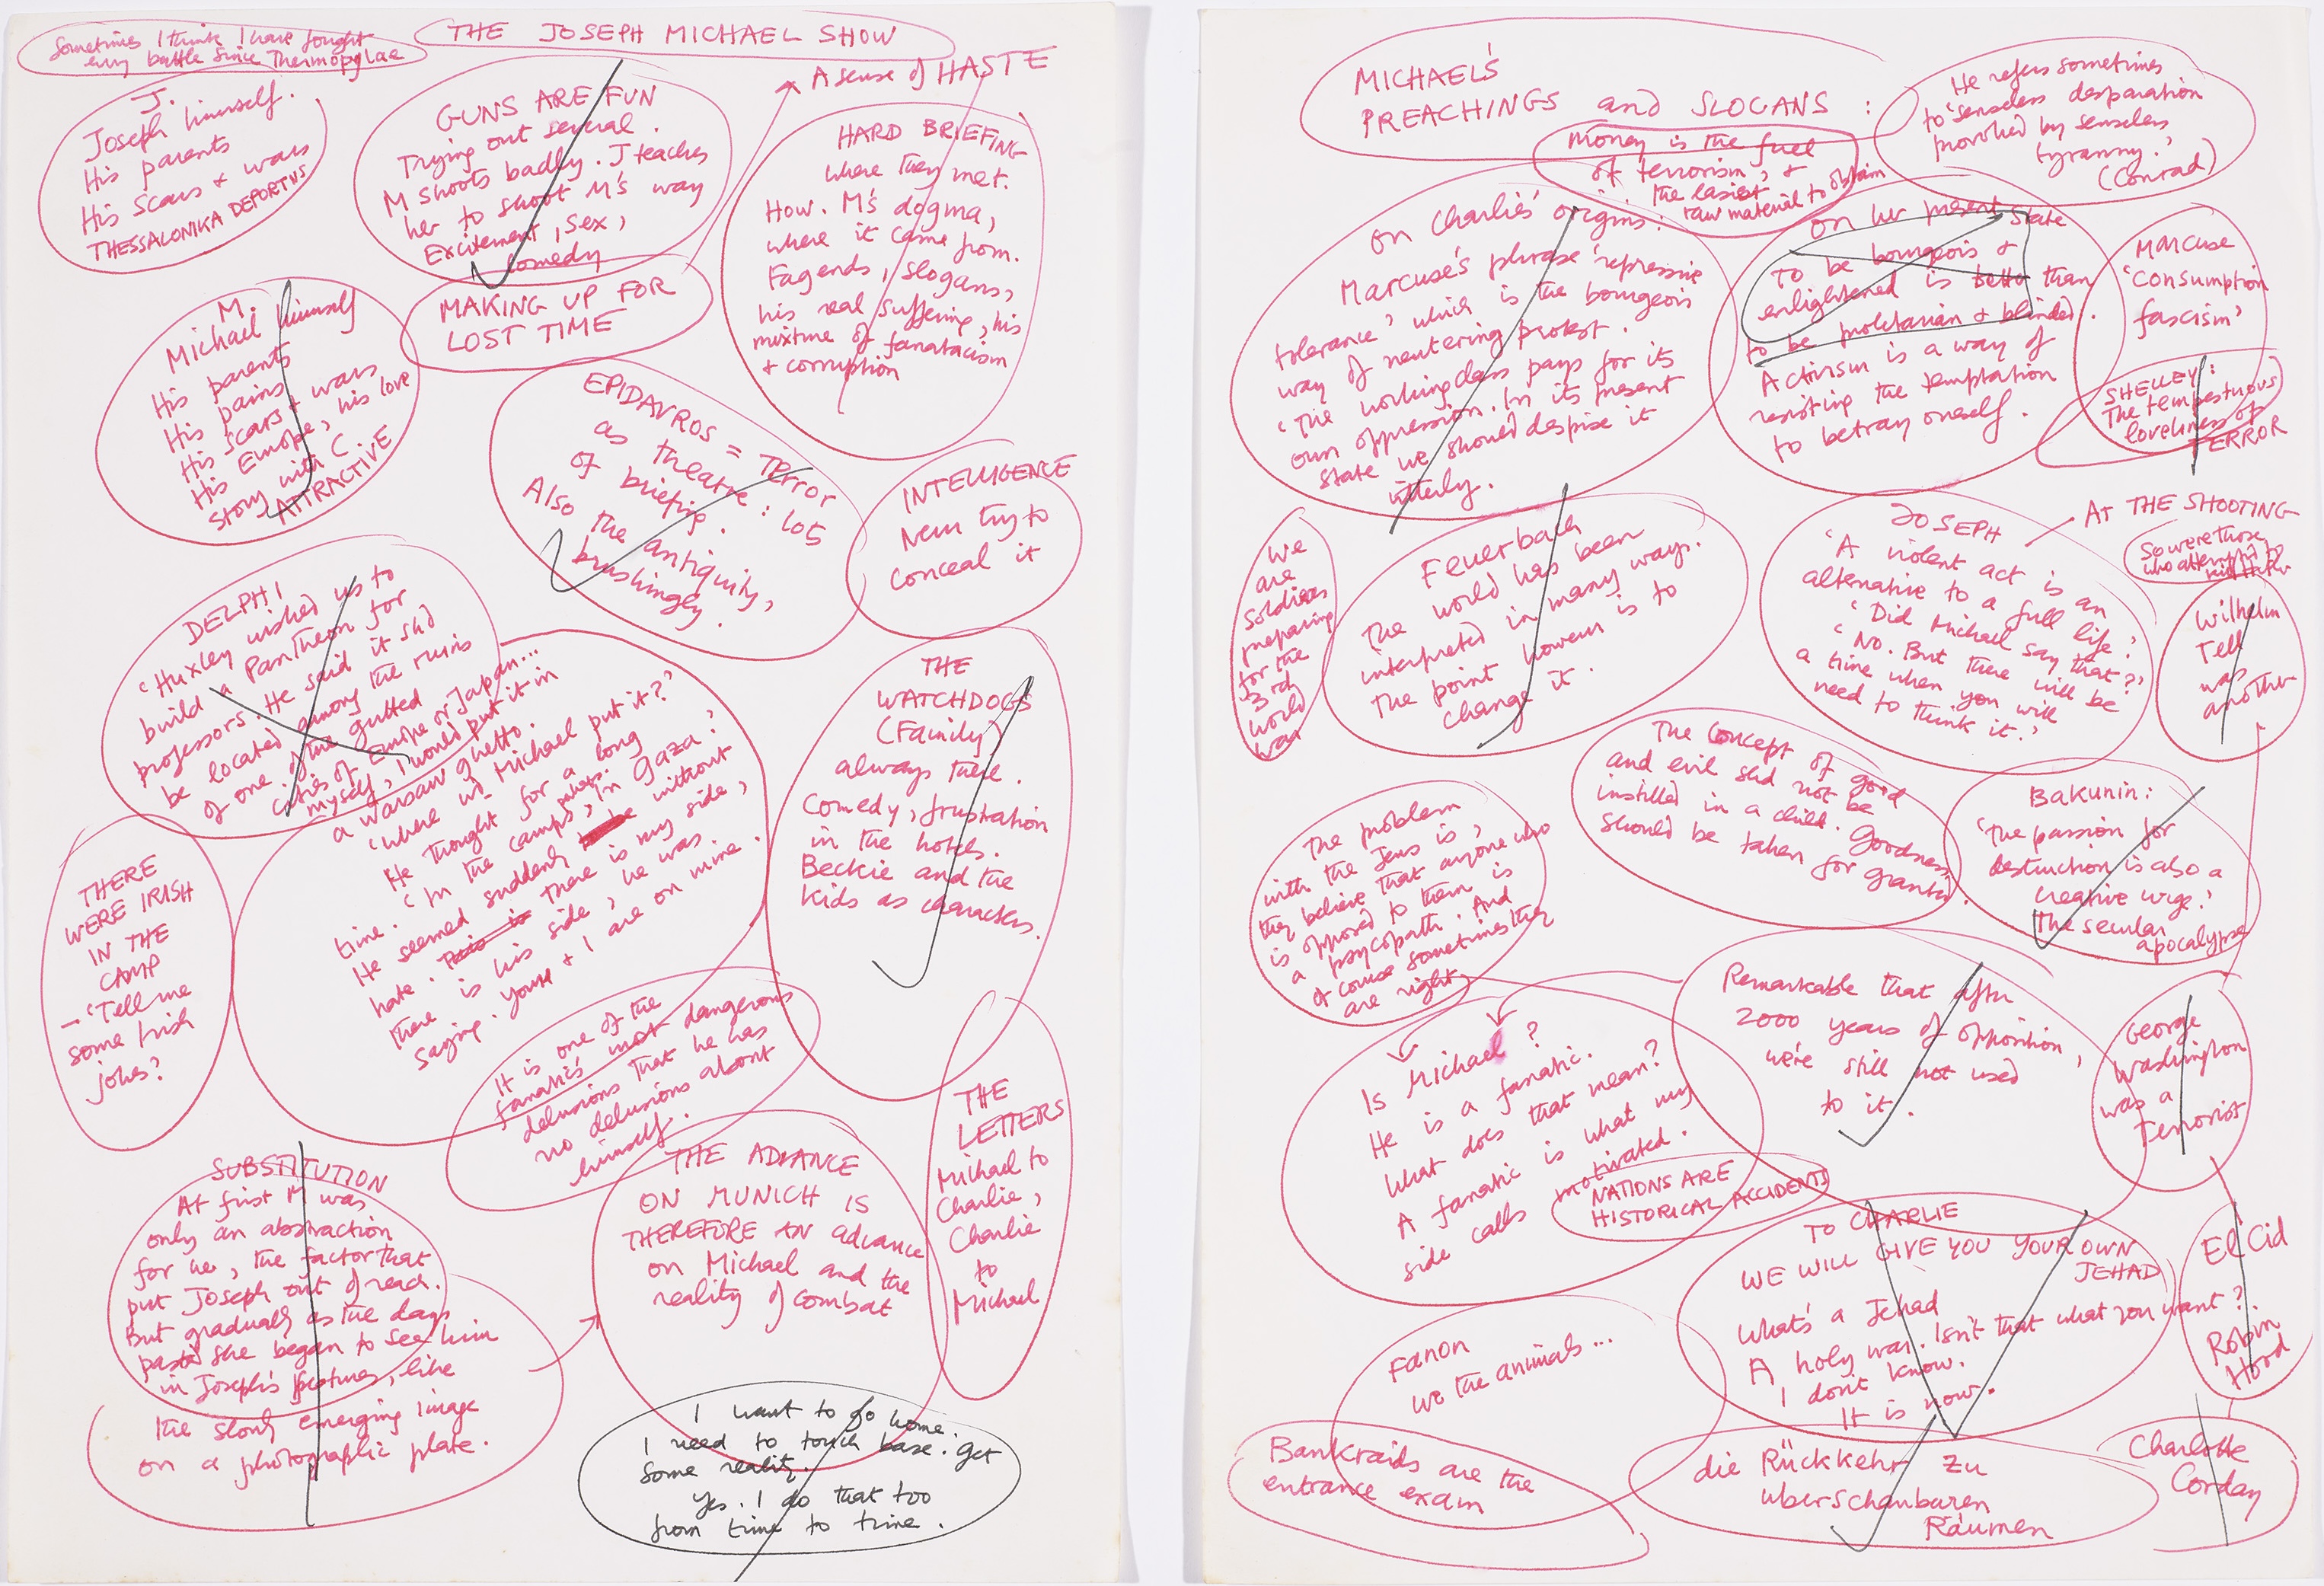 Sometimes I think I have fought
every battle since Thermopylae
THE JOSEPH MICHAEL SHOW
J.
Joseph himself.
His parents
His scars + wars
THESSALONIKA DEPORTNS
GUNS ARE FUN
Trying out several.
M shoots badly. J teaches
her to shoot M's way
Excitement, sex,
comedy
A sense of HASTE
HARD BRIEFING
where they met.
How. M's dogma,
where it came from.
Fagends, slogans,
his real suffering, his
mixture of fanatacism
+ corruption
MAKING UP FOR
LOST TIME
M.
Michael himself
His parents
His pains
His scars + wars
His Europe, his love
story with C
ATTRACTIVE
EPIDAVROS = Terror
as theatre: lots
of briefing.
Also the antiquity,
brushingly.
INTELLIGENCE
Never try to
conceal it
DELPHI
'Huxley wished us to
build a Pantheon for
professors. He said it shd
be located among the ruins
of one of the gutted
cities of Europe or Japan...
myself, I would put it in
a Warsaw ghetto.
'Where wd Michael put it?'
He thought for a long
time. 'In the camps, in Gaza.'
He seemed suddenly to be without
hate. This is there is my side,
there is his side, he was
saying. Yours + I are on mine.
THE
WATCHDOGS
(Family)
always there.
Comedy, frustration
in the hotels.
Beckie and the
kids as characters.
THERE
WERE IRISH
IN THE
CAMP
- 'Tell me
some Irish
jokes?
It is one of the
fanatic's most dangerous
delusions that he has
no delusions about
himself.
THE
LETTERS
Michael to
Charlie,
Charlie
to
Michael
SUBSTITUTION
At first M was
only an abstraction
for her, the factor that
put Joseph out of reach.
But gradually as the days
pasted she began to see him
in Joseph's features, like
the slowly emerging image
on a photographic plate.
THE ADVANCE
ON MUNICH IS
THEREFORE AN advance
on Michael and the
reality of combat
I want to go home.
I need to touch base. Get
some reality.
Yes. I do that too
from time to time.
MICHAEL'S
PREACHINGS and SLOGANS:
He refers sometimes
to 'senseless desparation
provoked by senseless
tyranny.'
(Conrad)
Money is the fuel
of terrorism, &
the easiest
raw material to obtain
On Charlie's origins:
Marcuse's phrase 'repressive
tolerance' which is the bourgeois
way of neutering protest.
'The working class pays for its
own oppression. In its present
state we should despise it
utterly.
On her present state
To be bourgeois &
enlightened is better than
to be proletarian & blinded.
Activism is a way of
resisting the temptation
to betray oneself.
Marcuse
'consumption
fascism'
SHELLEY:
The tempestuous
loveliness of
TERROR
We
are
soldiers
preparing
for the
3rd
world
war
Feuerbach
The world has been
interpreted in many ways.
The point however is to
change it.
JOSEPH
AT THE SHOOTING
'A violent act is an
alternative to a full life.'
'Did Michael say that?'
'No. But there will be
a time when you will
need to think it.'
So were those
who attempted to
kill Hitler
Wilhelm
Tell
was
another
The concept of good
and evil shd not be
instilled in a child. Goodness
should be taken for granted.
The problem
with the Jews is,
they believe that anyone who
is opposed to them is
a psycopath. And
of course sometimes they
are right
Bakunin:
'the passion for
destruction is also a
creative urge.'
The secular
apocalypse
Remarkable that after
2000 years of opposition,
we're still not used
to it.
Is Michael?
He is a fanatic.
What does that mean?
A fanatic is what my
side calls motivated.
NATIONS ARE
HISTORICAL ACCIDENTS
George
Washington
was a
Terrorist
TO CHARLIE
WE WILL GIVE YOU YOUR OWN
JEHAD
What's a Jehad
A holy war. Isn't that what you want?
I don't know.
It is now.
El Cid
Robin
Hood
Fanon
We the animals...
Bankraids are the
entrance exam
die Rückkehr zu
uberschaubaren
Räumen
Charlotte
Corday